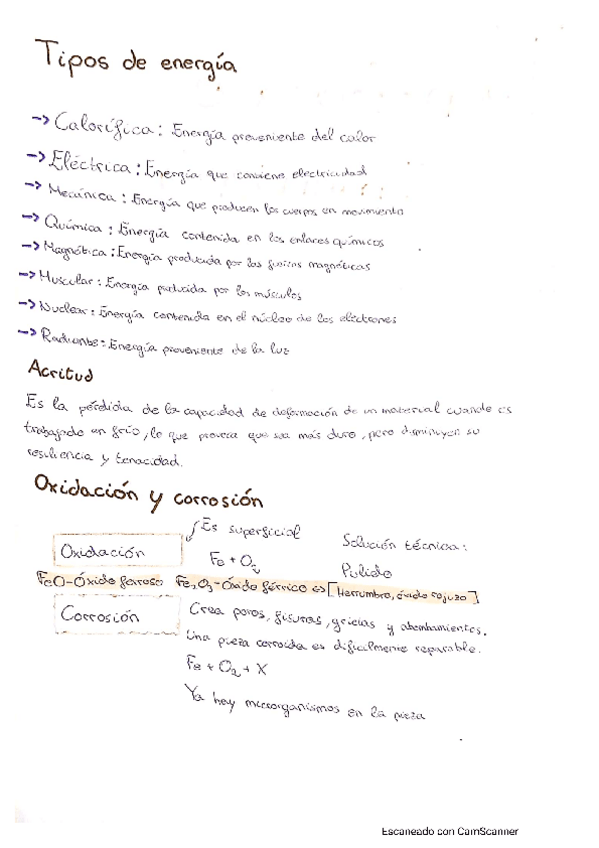 Tipos de energía
-> Calorífica: Energía proveniente del calor
-> Eléctrica: Energía que contiene electricidad
-> Mecánica: Energía que producen los cuerpos en movimiento
-> Química: Energía contenida en los enlaces químicos
-> Magnética: Energía producida por las fuerzas magnéticas
-> Muscular: Energía producida por los músculos
-> Nuclear: Energía contenida en el núcleo de los electrones
-> Radiante: Energía proveniente de la luz
Acritud
Es la pérdidia de la capacidad de deformación de un material cuando es
trabajado en frío, lo que provoca que sea más duro, pero disminuyen su
resiliencia y tenacidad.
Oxidación y corrosión
Es superficial
Oxidación
Fe + O₂
Solución técnica:
Pulido
FeO-Óxido ferroso Fe₂O₃-Óxido férrico <=> [Herrumbre, óxido rojizo]
Corrosión
Crea poros, fisuras, grietas y abombamientos.
Una pieza corroida es dificilmente reparable.
Fe + O₂ + X
Ya hay microorganismos en la pieza
Escaneado con CamScanner